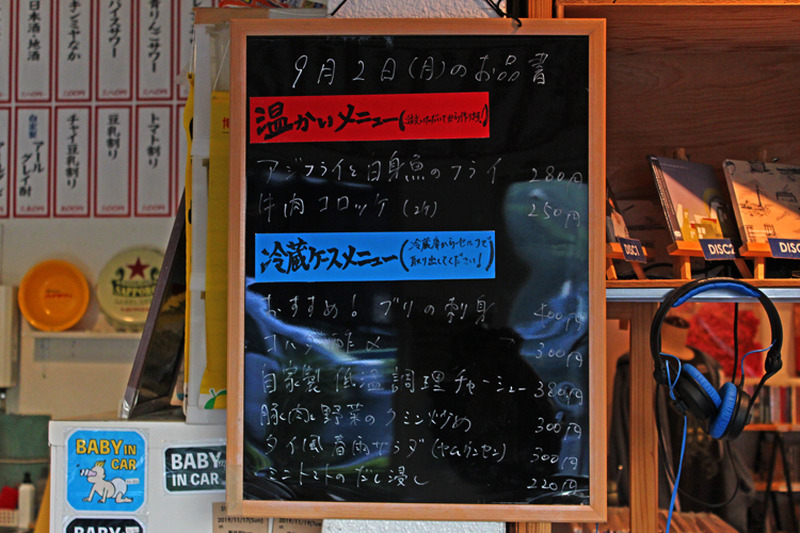 9月2日(月)のお品書
温かいメニュー(注文いただいてから作ります!)
アジフライと白身魚のフライ 280円
牛肉コロッケ(2ケ) 250円
冷蔵ケースメニュー(冷蔵庫からセルフで
取り出してください!)
おすすめ! ブリの刺身 400円
コハダ酢〆 300円
自家製 低温調理チャーシュー 380円
豚肉と野菜のクミン炒め 300円
タイ風春雨サラダ(ヤムウンセン) 300円
ミニトマトのだし浸し 220円
日本酒・地酒
キンミヤなか
バイスサワー
青りんごサワー
自家製
アールグレイ酎
チャイ豆乳割り
豆乳割り
トマト割り
SAPPORO
DISC1
DISC2
DISC
BABY IN
CAR
BABY
IN CAR
BABY
2019/11/17(Sun)
2019/11